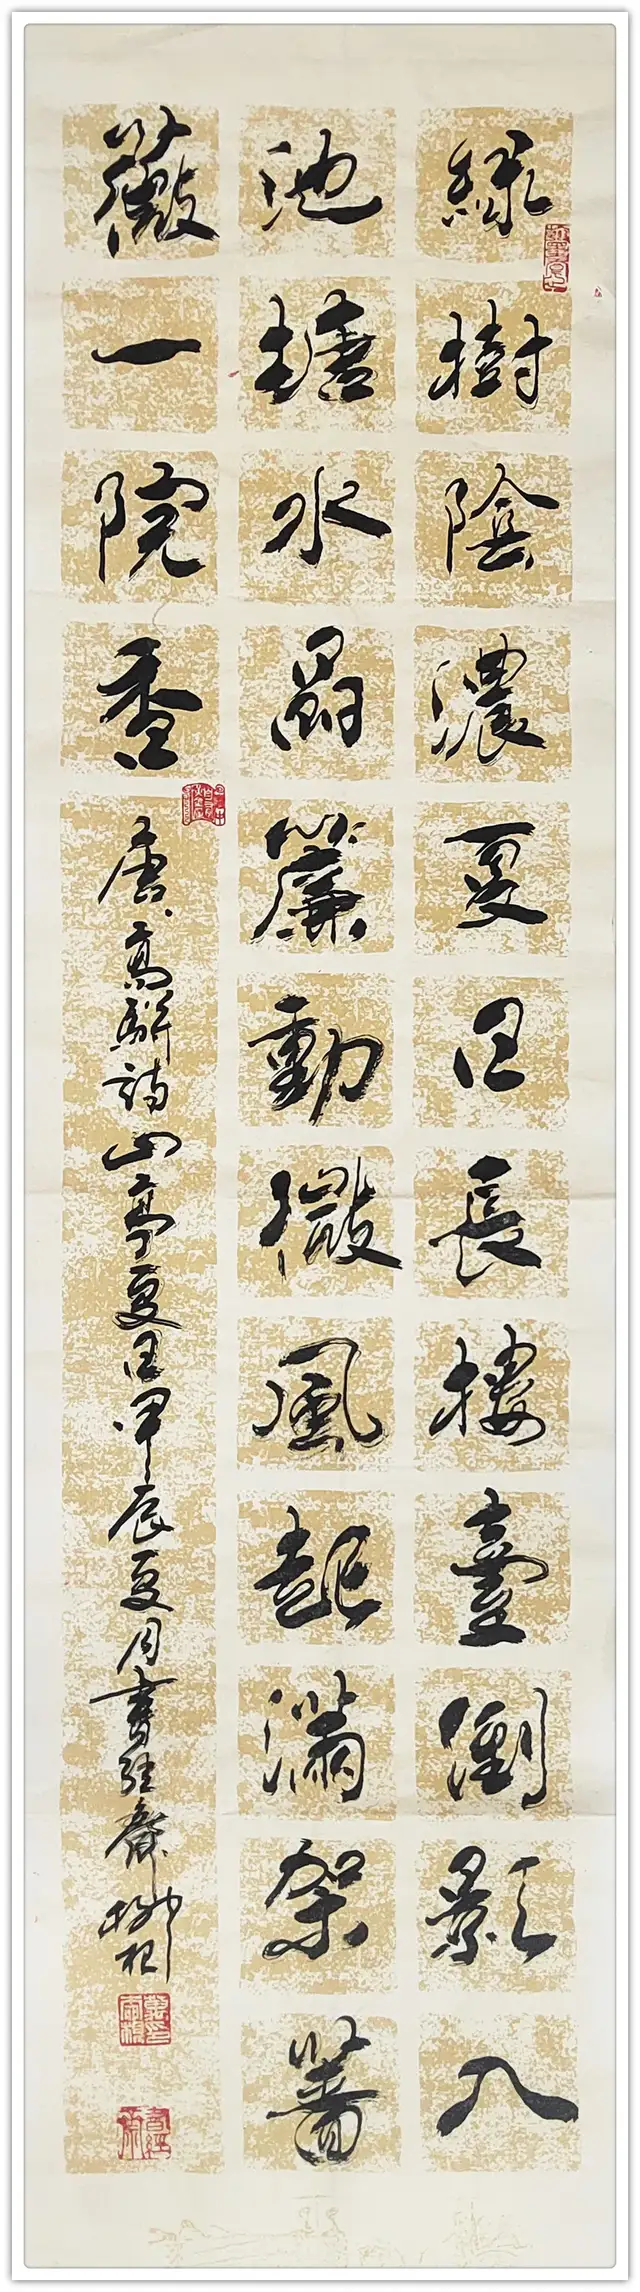 綠樹陰濃夏日長樓臺倒影入
池塘水晶簾動微風起滿架薔
薇一院香
唐高駢詩山亭夏日甲辰夏月書經齋